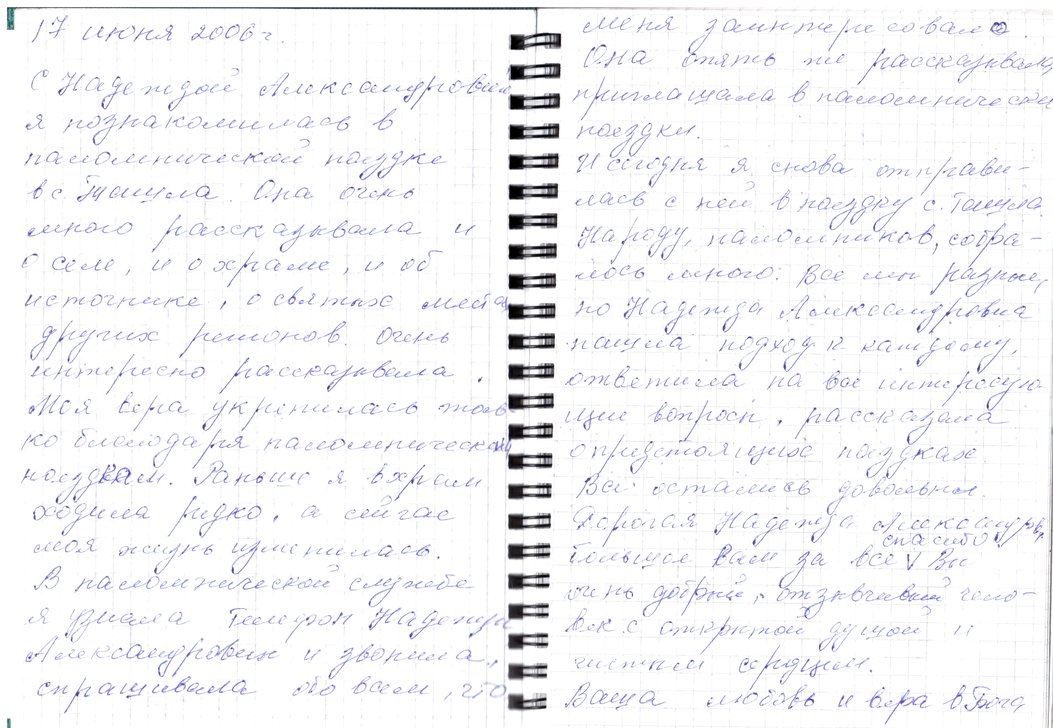 17 июня 2006 г.
С Надеждой Александровной
я познакомилась в
паломнической поездке
в с. Ташла. Она очень
много рассказывала и
о селе, и о храме, и об
источнике, о святых местах
других регионов. Очень
интересно рассказывала.
Моя вера укрепилась толь-
ко благодаря паломническим
поездкам. Раньше я в храм
ходила редко, а сейчас
моя жизнь изменилась.
В паломнической службе
я узнала телефон Надежды
Александровны и звонила,
спрашивала обо всем, что
меня заинтересовало.
Она опять же рассказывала,
приглашала в паломнические
поездки.
И сегодня я снова отправи-
лась с ней в поездку с. Ташла.
Народу, паломников, собра-
лось много. Все мы разные,
но Надежда Александровна
нашла подход к каждому,
ответила на все интересую-
щие вопросы, рассказала
о предстоящих поездках
Все остались довольны.
Дорогая Надежда Александровна,
большое Вам за все спасибо Вы
очень добрый, отзывчивый чело-
век с открытой душой и
чистым сердцем.
Ваша любовь и вера в Бога